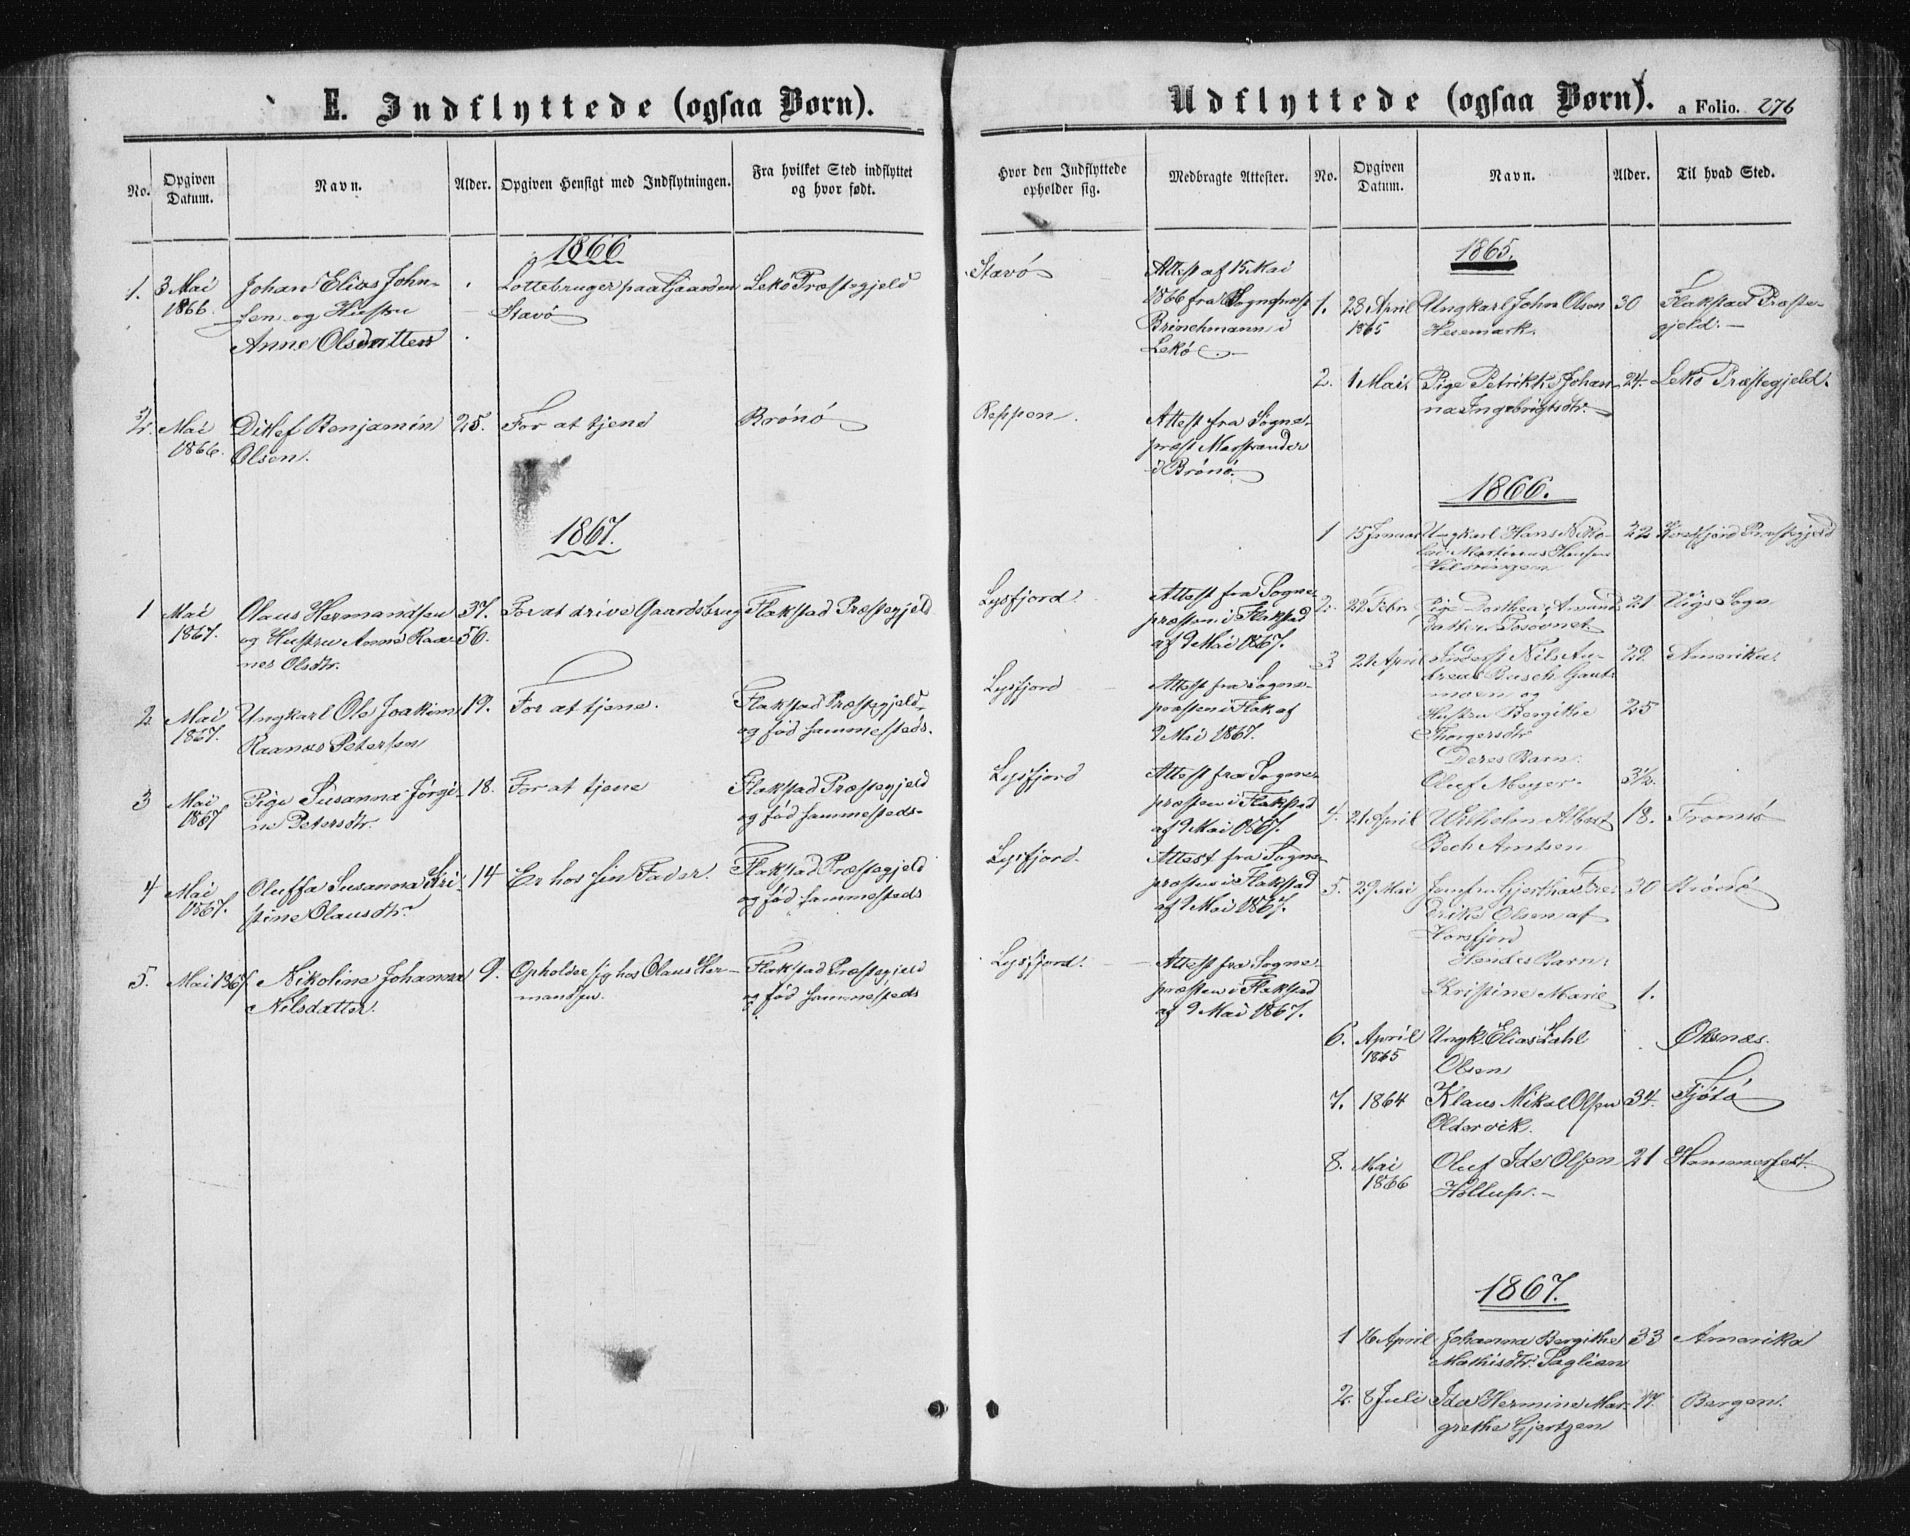 E. Indflyttede (ogsaa Børn).
No.
Opgiven Datum.
Navn.
Alder.
Opgiven Hensigt med Indflytningen.
Fra hvilket Sted indflyttet
og hvor født.
1866
1. 3 Mai
1866.
Johan Elias John-
sen og Hustru
Anne Olsdatter
Lottebruger paa Gaarden
Stavø
Lekø Præstegjeld
2. Mai
1866.
Ditlef Benjamin
Olsen.
25.
For at tjene
Brønø
1867.
1 Mai
1867.
Olaus Hermandsen
og Hustru Anne Raa-
nes Olsdtr.
37.
56.
For at drive Gaardsbrug
Flakstad Præstegjeld
2 Mai
1867.
Ungkarl Ole Joakim
Raanæs Petersen
19.
For at tjene.
Flakstad Præstegjeld
og fød sammesteds.
3 Mai
1867
Pige Susanna Jørgi-
ne Petersdtr.
18.
For at tjene
Flakstad Præstegjeld
og fød sammesteds.
4 Mai
1867.
Oluffa Susanna Kri-
stine Olausdtr.
14
Er hos sin Fader.
Flakstad Præstegjeld
og fød sammesteds
5. Mai 1867.
Nikoline Johanna
Nilsdatter.
9.
Opholder sig hos Olaus Her-
mandsen.
Flakstad Præstegjeld
og fød sammesteds
Udflyttede (ogsaa Børn).
a Folio. 276
Hvor den Indflyttede
opholder sig.
Medbragte Attester.
No.
Opgiven
Datum.
Navn.
Alder.
Til hvad Sted.
Stavø
Attest af 15 Mai
1866 fra Sognepræst
Brinchmann i
Lekø.
Reppen.
Attest fra Sogne-
præst Marstrander
i Brønø.
Lysfjord.
Attest fra Sogne-
præsten i Flakstad
af 9 Mai 1867.
Lysfjord
Attest fra Sogne-
præsten i Flak. af
9 Mai 1867.
Lysfjord
Attest fra Sogne-
præsten i Flakstad
af 9 Mai 1867.
Lysfjord.
Attest fra Sogne-
præsten i Flakstad
af 9 Mai 1867.
Lysfjord.
Attest fra Sogne-
præsten i Flakstad
af 9 Mai 1867.
1865.
1. 28 April
1865
Ungkarl John Olsen
Hesemark.
30
Flakstad Præste-
gjeld.
2. 1 Mai.
Pige Petrikke Johan-
na Ingebrigtsdtr.
24.
Lekø Præstegjeld.
1866.
1 15 Januar
Ungkarl Hans Niko-
lai Martinus Hansen
Hildringen
22
Præstegjeld
2. 22 Febr.
Pige Dorthea Amund
datter Tosovnet
21
Vigs Sogn
3 21 April
Nils An-
dreas Busch Gaut-
moen og
29.
Amerika.
Hustru Bergithe
Thorgersdtr
25
Deres Barn.
Oluf Meyer.
3½.
4. 21 April
Wilhelm Albert
Bech Arntsen
18.
Tromsø
5. 29 Mai
Fre-
drike Olsen af
Horsfjord
30
Hendes Barn.
Kristine Marie
1.
6. April
1865
Ungk. Elias Zahl
Olsen
Øksnæs.
7. 1864
Klaus Nikol Olsen
Oldervik.
34.
Tjøtø
8. Mai
1866
Oluf Ides Olsen
Hollup.
21
Hammerfest.
1867.
1 16 April
Johanna Bergithe
Mathisdtr.
33
Amerika
2. 8 Juli
Ida Hermine Mar-
grethe Gjertzen
17.
Bergen.